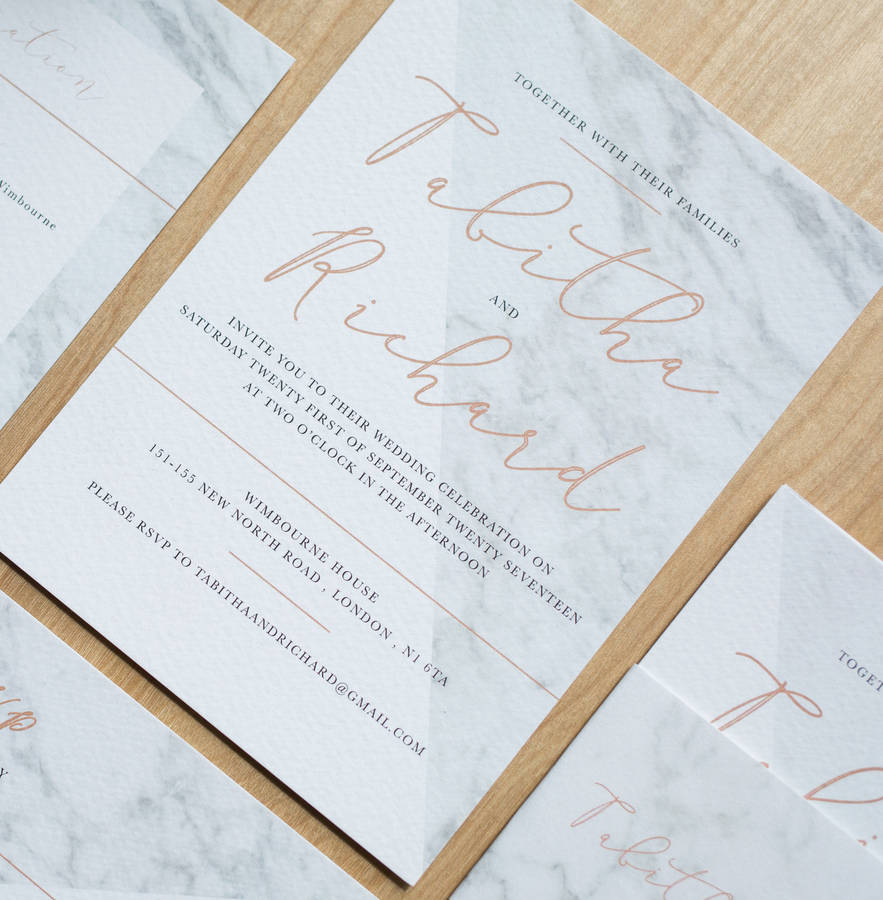 TOGETHER WITH THEIR FAMILIES
Tabitha
AND
Richard
INVITE YOU TO THEIR WEDDING CELEBRATION ON
SATURDAY TWENTY FIRST OF SEPTEMBER TWENTY SEVENTEEN
AT TWO O'CLOCK IN THE AFTERNOON
WIMBOURNE HOUSE
151-155 NEW NORTH ROAD , LONDON, N1 6TA
PLEASE RSVP TO TABITHAANDRICHARD@GMAIL.COM
Wimbourne